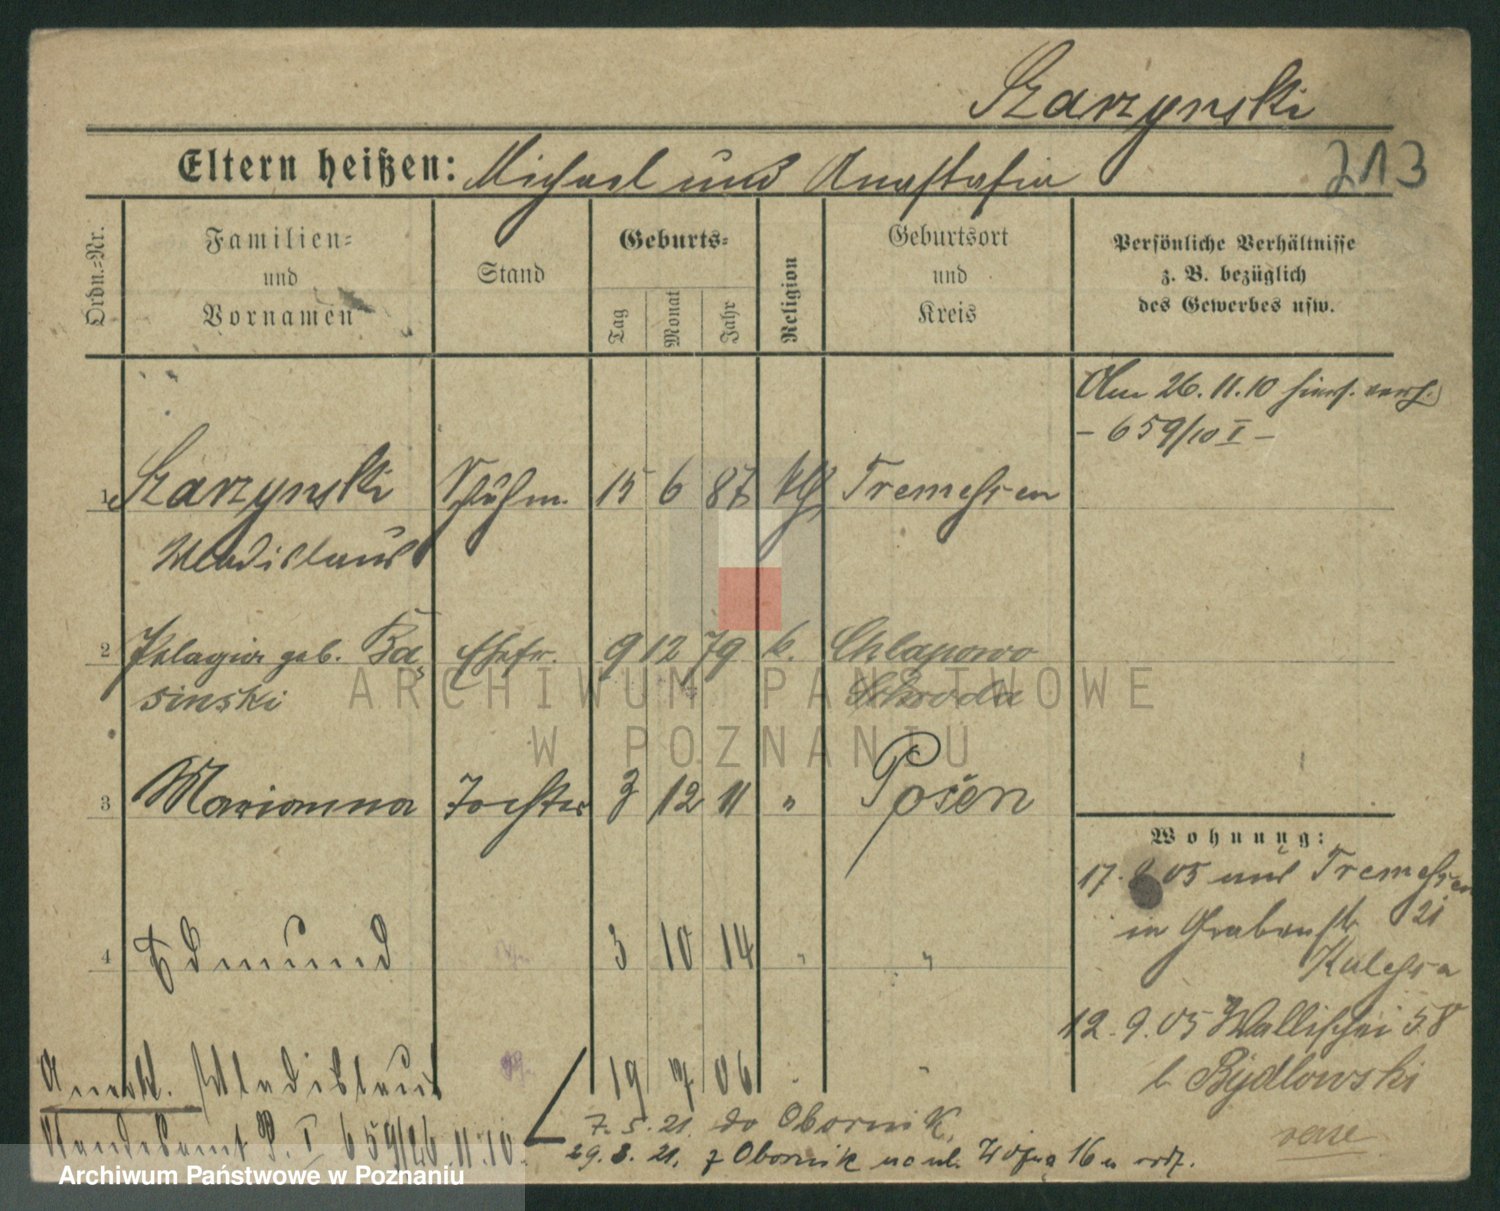 Szarzynski
Eltern heißen: Michael und Anastasia
213
Ordn.-Nr.
Familien-
und
Vornamen
Stand
Geburts-
Tag
Monat
Jahr
Religion
Geburtsort
und
Kreis
Persönliche Verhältnisse
z. B. bezüglich
des Gewerbes usw.
Am 26.11.10 hiers. verh.
- 659/10 I -
1 Szarzynski Schuhm. 15 6 87 kth Tremessen
Wladislaus
2 Pelagia geb. Ba- Ehefr. 9 12 79 k. Chlapowo
sinski Schroda
3 Marianna Tochter 3 12 11 " Posen
Wohnung:
17. 05 aus Tremessen
in Grabenstr 21
Kulessa
4 Edmund 3 10 14 " "
12.9.05 Wallischei 58
b. Bydlowski
verse
Anerk. Wladislaus 19 7 06 " "
Standesamt P. I 659/26.11.10.
7.5.21. do Obornik,
29.8.21. z Obornik 16
ARCHIWUM PAŃSTWOWE
W POZNANIU
Archiwum Państwowe w Poznaniu